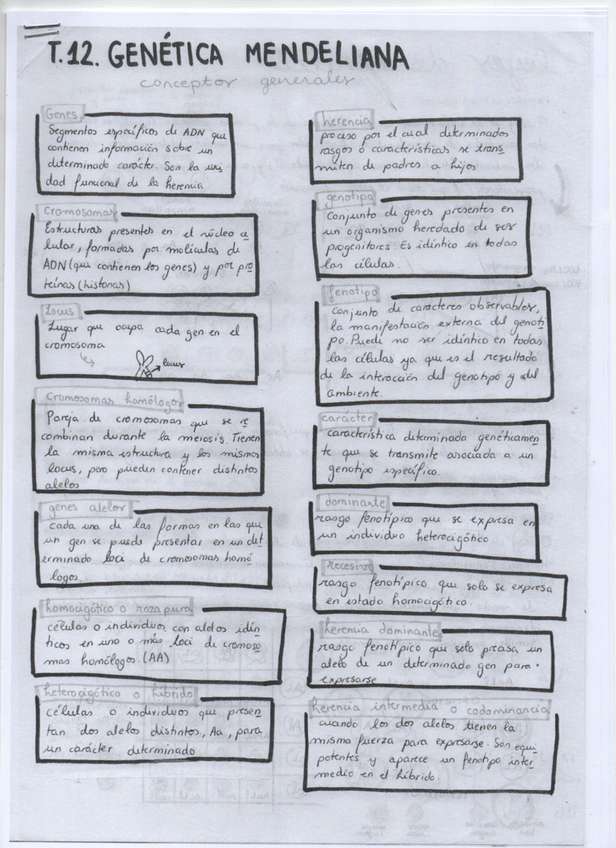 T.12. GENÉTICA MENDELIANA
conceptos generales
Genes
Segmentos específicos de ADN que
contienen información sobre un
determinado carácter. Son la uni
dad funcional de la herencia
Cromosomas
Estructuras presentes en el núcleo ce
lular, formadas por moléculas de
ADN (que contienen los genes) y por pro
teínas (histonas)
Locus
Lugar que ocupa cada gen en el
cromosoma
locus
Cromosomas homólogos
Pareja de cromosomas que se re
combinan durante la meiosis. Tienen
la misma estructura y los mismos
locus, pero pueden contener distintos
alelos
genes alelos
cada una de las formas en las que
un gen se puede presentar en un det
erminado loci de cromosomas homó
logos.
homocigótico o raza pura
células o individuos con alelos idén
ticos en uno o más loci de cromoso
mas homólogos. (AA)
heterocigótico o híbrido
células o individuos que presen
tan dos alelos distintos, Aa, para
un carácter determinado
herencia
proceso por el cual determinados
rasgos o características se trans
miten de padres a hijos
genotipo
Conjunto de genes presentes en
un organismo heredado de sus
progenitores. Es idéntico en todas
las células.
fenotipo
Conjunto de caracteres observables,
la manifestación externa del genoti
po. Puede no ser idéntico en todas
las células ya que es el resultado
de la interacción del genotipo y del
ambiente.
carácter
característica determinada genéticamen
te que se transmite asociada a un
genotipo específico.
dominante
rasgo fenotípico que se expresa en
un individuo heterocigótico
recesivo
rasgo fenotípico que solo se expresa
en estado homocigótico.
herencia dominante
rasgo fenotípico que solo precisa un
alelo de un determinado gen para
expresarse
herencia intermedia o codominancia
cuando los dos alelos tienen la
misma fuerza para expresarse. Son equi
potentes y aparece un fenotipo inter
medio en el híbrido.